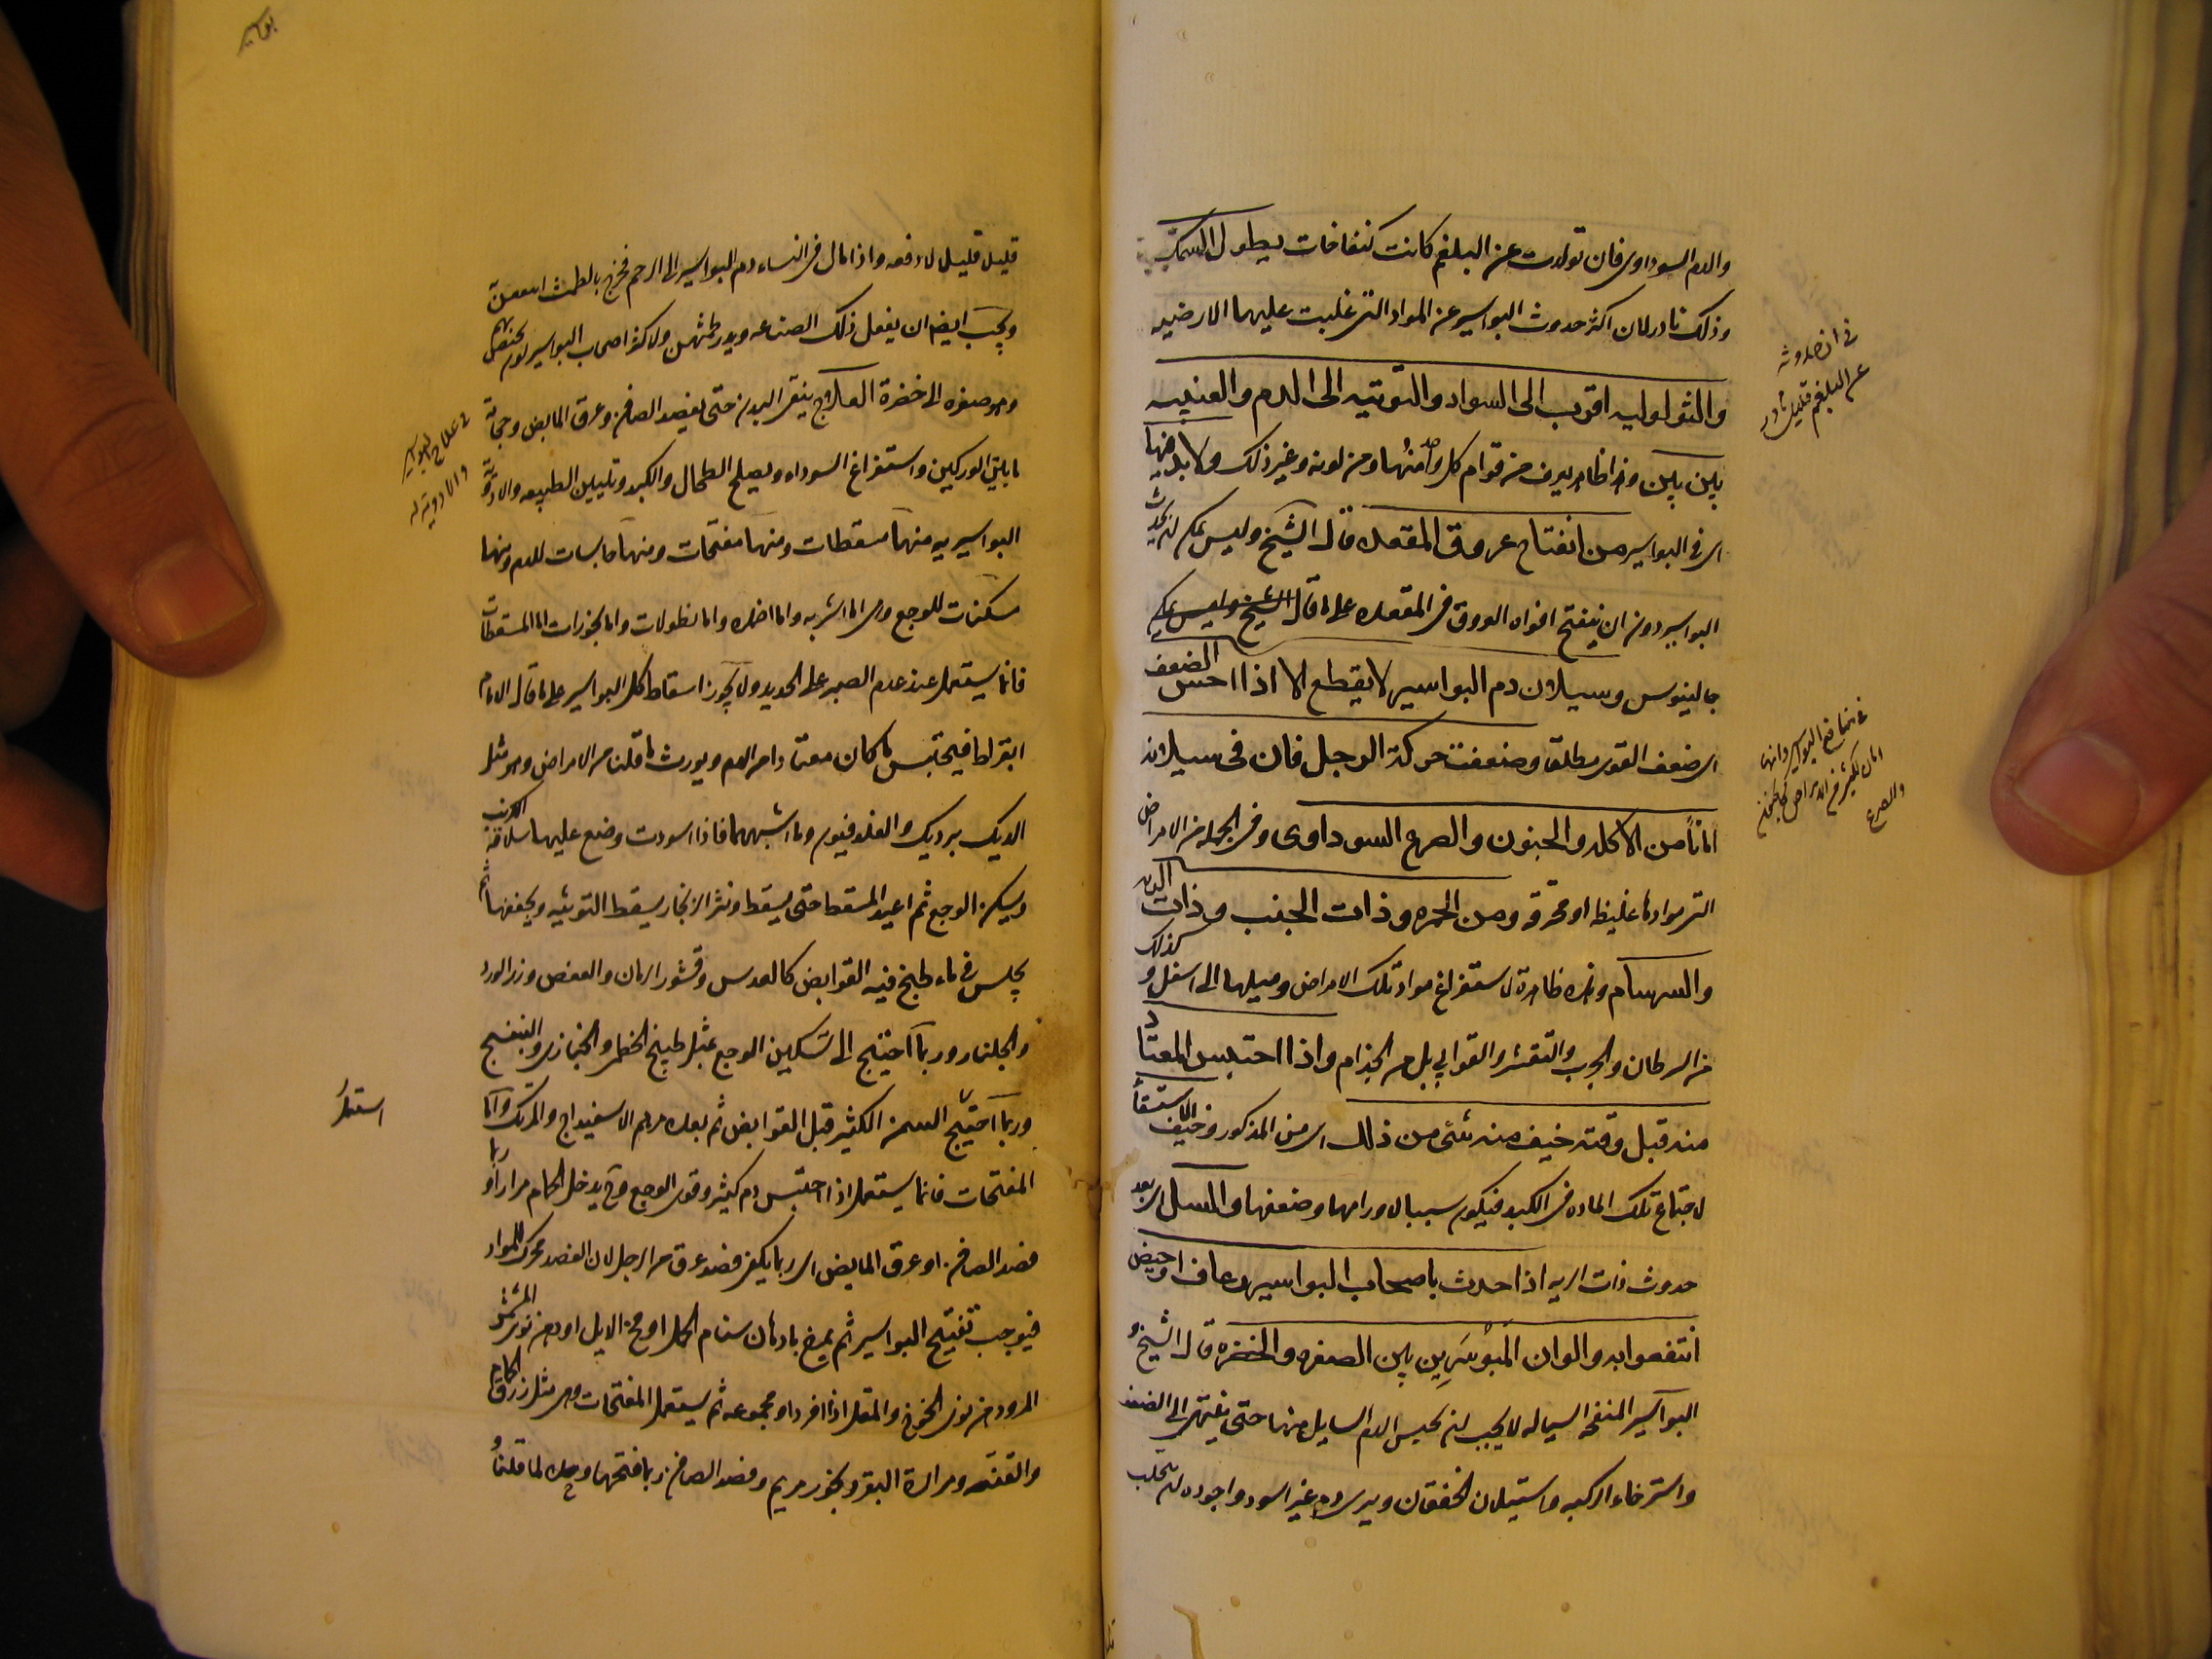 والدم السوداوي فان تولدت عن البلغم كانت كنفاخات بطول السمك
وذلك نادر لان اكثر حدوث البواسير عن المواد التي غلبت عليها الارضيه
والثولوليه اقرب الى السواد والتوتيه الى الدم والعنبيه
بين بين وهذا ظاهر يعرف من قوام كل واحد منها ومن لونه وغير ذلك ولا بد فيها
اى في البواسير من انفتاح عروق المقعده قال الشيخ وليس يمكن ان يحدث
البواسير دون ان ينفتح افواه العروق في المقعده على ما قال
جالينوس وسيلان دم البواسير لا يقطع الا اذا احس الضعف
اى ضعف القوى مطلقا وضعفت حركة الرجل فان في سيلانه
امانا من الاكله والجنون والصرع السوداوى وفي الجمله من الامراض
التي موادها غليظه او محترقه ومن الحمره وذات الجنب وذات الريه
والسرسام وهذه ظاهرة لاستفراغ مواد تلك الامراض وميلها الى اسفل وكذلك
من السرطان والجرب والتقشر والقوابي بل من الجذام واذا احتبس المعتاد
منه قبل وقته خيف منه شئ من ذلك اى من المذكور وخيف الاستسقاء
لاجتماع تلك الماده في الكبد فيكون سببا لاورامها وضعفها والسل اى بعد
حدوث ذات الريه اذا حدث باصحاب البواسير رعاف او حيض
انتفعوا به والوان المبوسرين بين الصفره والخضره قال الشيخ و
البواسير المنفتحه السياله لا يجب ان يحبس الدم السايل منها حتى ينتهى الى الضعف
واسترخاء الركبه واستيلان الخفقان ويرى دم غير اسود واجوده ان يتحلب
في ان حدوثه
عن البلغم قليل نادر
في منافع البواسير وانها
امان لكثير من الامراض كالجنون
والصرع
قليل قليل لا دفعه واذا مال في النساء دم البواسير الى الرحم فخرج بالطمث انتفعن به
ويجب ايضا ان يفعل ذلك الصناعه ويدر طمثهن ولاكثر اصحاب البواسير لون يختص بهم
وهو صفره الى خضرة العلاج ينقى البدن حتى بفصد الصافن وعرق المابض وحجامة
ما بين الوركين واستفراغ السوداء ويصلح الطحال والكبد وتليين الطبيعه والادوية
البواسيريه منها مسقطات ومنها مفتحات ومنها حابسات للدم ومنها
مسكنات للوجع وهى اما اشربه واما اضمده واما نطولات واما بخورات اما المسقطات
فانما يستعمل عند عدم الصبر على الحديد ولا يجوز اسقاط كل البواسير على ما قال الامام
ابقراط فيحتبس ما كان معتادا من الدم ويورث ما قلنا من الامراض وهو مثل
الديك برديك والفلدفيون وما اشبههما فاذا اسودت وضع عليها سلاقة الكرنب
ويسكن الوجع ثم اعيد المسقط حتى يسقط ونثر الزنجار يسقط التوتيه ويجففها ثم
يجلس في ماء طبخ فيه القوابض كالعدس وقشور الرمان والعفص وزر الورد
والجلنار وربما احتيج الى تسكين الوجع بمثل طبيخ الخطمي والخبازى والبنفسج
وربما احتيج السمن الكثير قبل القوابض ثم بعده مرهم الاسفيداج والمرتك واما
المفتحات فانما يستعمل اذا احتبس دم كثير وقوى الوجع وح يدخل الحمام مرارا وربما
فصد الصافن او عرق المابض اى ربما يكفى فصد عرق من الرجل لان الفصد محرك للمواد
فيوجب تفتيح البواسير ثم يمرخ بادهان سنام الجمل او مخ الايل او دهن نوى المشمش
المرود من نوى الخوخ والمقل اذا افرد او مجموعه ثم يستعمل المفتحات وهى مثل زرق الحمام
والقنه ومرارة البقر وبخور مريم وفصد الصافن ربما فتحها وحده لما قلنا و
في علاج البواسير
والادوية له
استعمل
بواسير